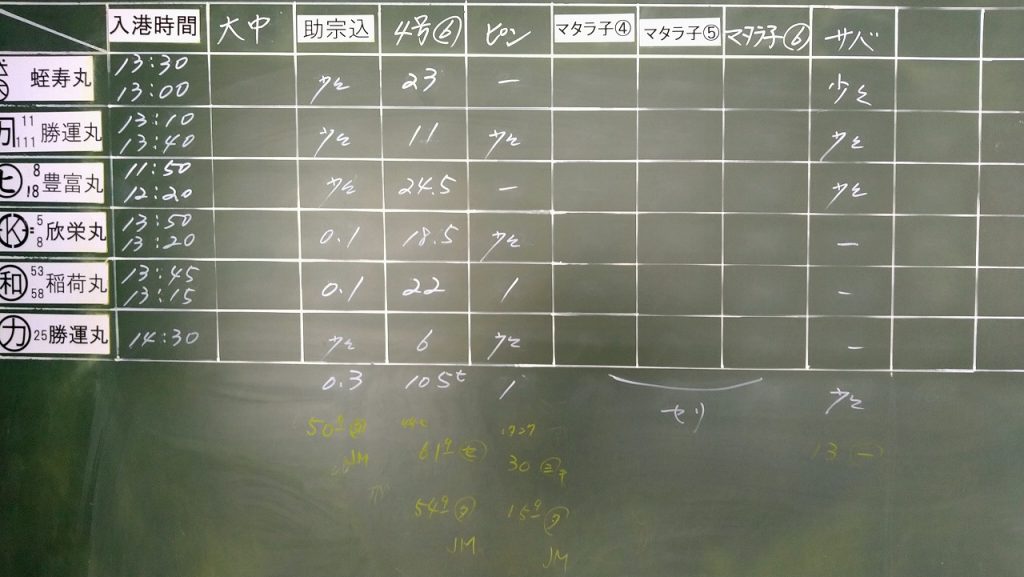 入港時間 大中 助宗込 4号⑥ ピン マタラ子④ マタラ子⑤ マタラ子⑥ サバ
蛭寿丸 13:30 13:00 少々 23 ー 少々
11 111 勝運丸 13:10 13:40 少々 11 少々 少々
ヒ 8 18 豊富丸 11:50 12:20 少々 24.5 ー 少々
Ⓚ 5 8 欣栄丸 13:50 13:20 0.1 18.5 少々 ー
和 53 58 稲荷丸 13:45 13:15 0.1 22 1 ー
カ 25 勝運丸 14:30 少々 6 少々 ー
0.3 105t 1 セリ 少々
50
JM 61 30
54 15
JM JM